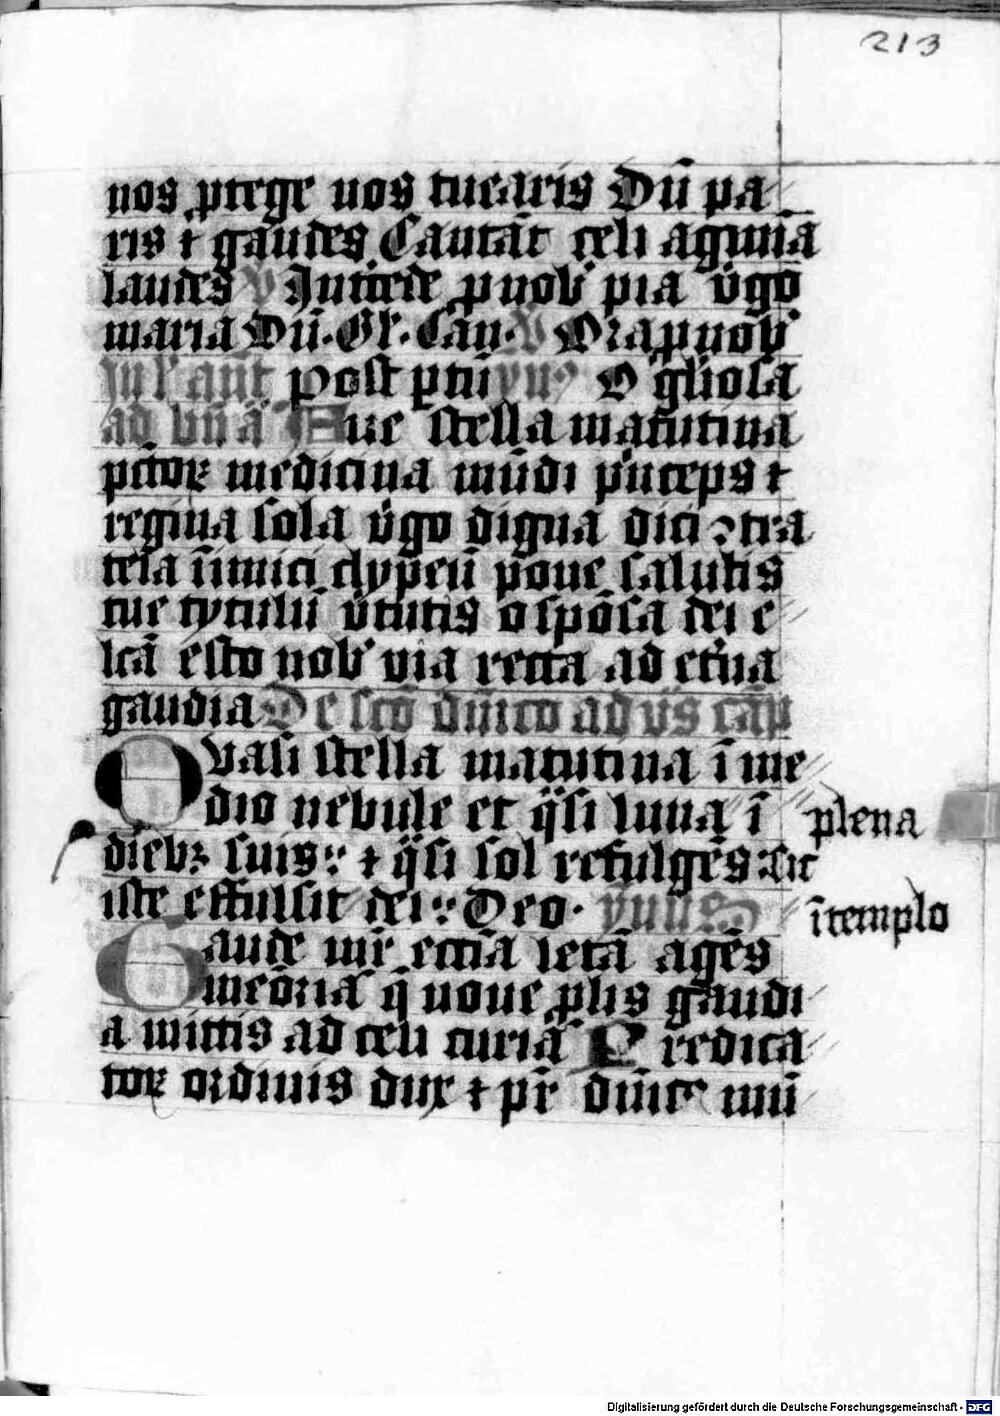 213
nos ꝓtege nos tuearis Dū pa
ris ⁊ gaudes Cantāt celi agmīa
laudes V Int͛cede ꝓ nob̓ pia v̓go
maria Dū. Gl̓. Can. V Ora ꝓ nob̓
post ꝑtū vn⁹ O gl̓iosa
ad vn̄ā Aue stella matutina
pc̄coꝝ medicina mūdi p̓nceps ⁊
regina sola v̓go digna dici ↄtra
tela īimici clypeū pone salutis
tue tytulū v̓tutis o spōsa dei e
lcā esto nob̓ via recta ad et̓na
gaudia De scō dn̄ico ad vꝭs cāp
Quasi stella matutina ī me
dio nebule et q̈si luna ī
plena
diebꝫ suis ⁊ q̈si sol refulgēs sic
iste effulsit dei Deo. ymnus
ī templo
Gaude mr̄ ecc̄ia letā agēs
meōriā q̄ noue ꝓlis gaudi
a mittis ad celi curiā Predica
toꝝ ordinis dux ⁊ pr̄ dn̄ic⁹ mū
Digitalisierung gefördert durch die Deutsche Forschungsgemeinschaft - DFG